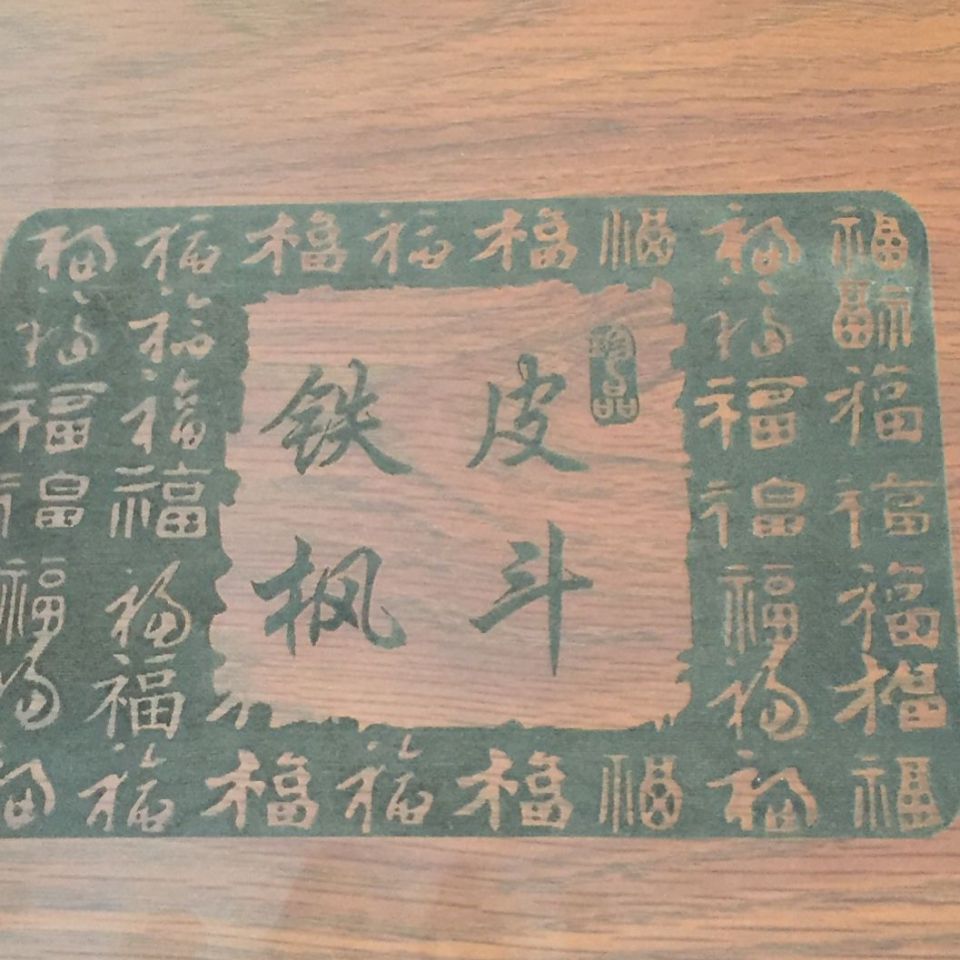 福福福福福福福福
福福福福
福福福福
福福福福
福福福福
福福福福
福福福福福福福福
铁皮
枫斗
珍品